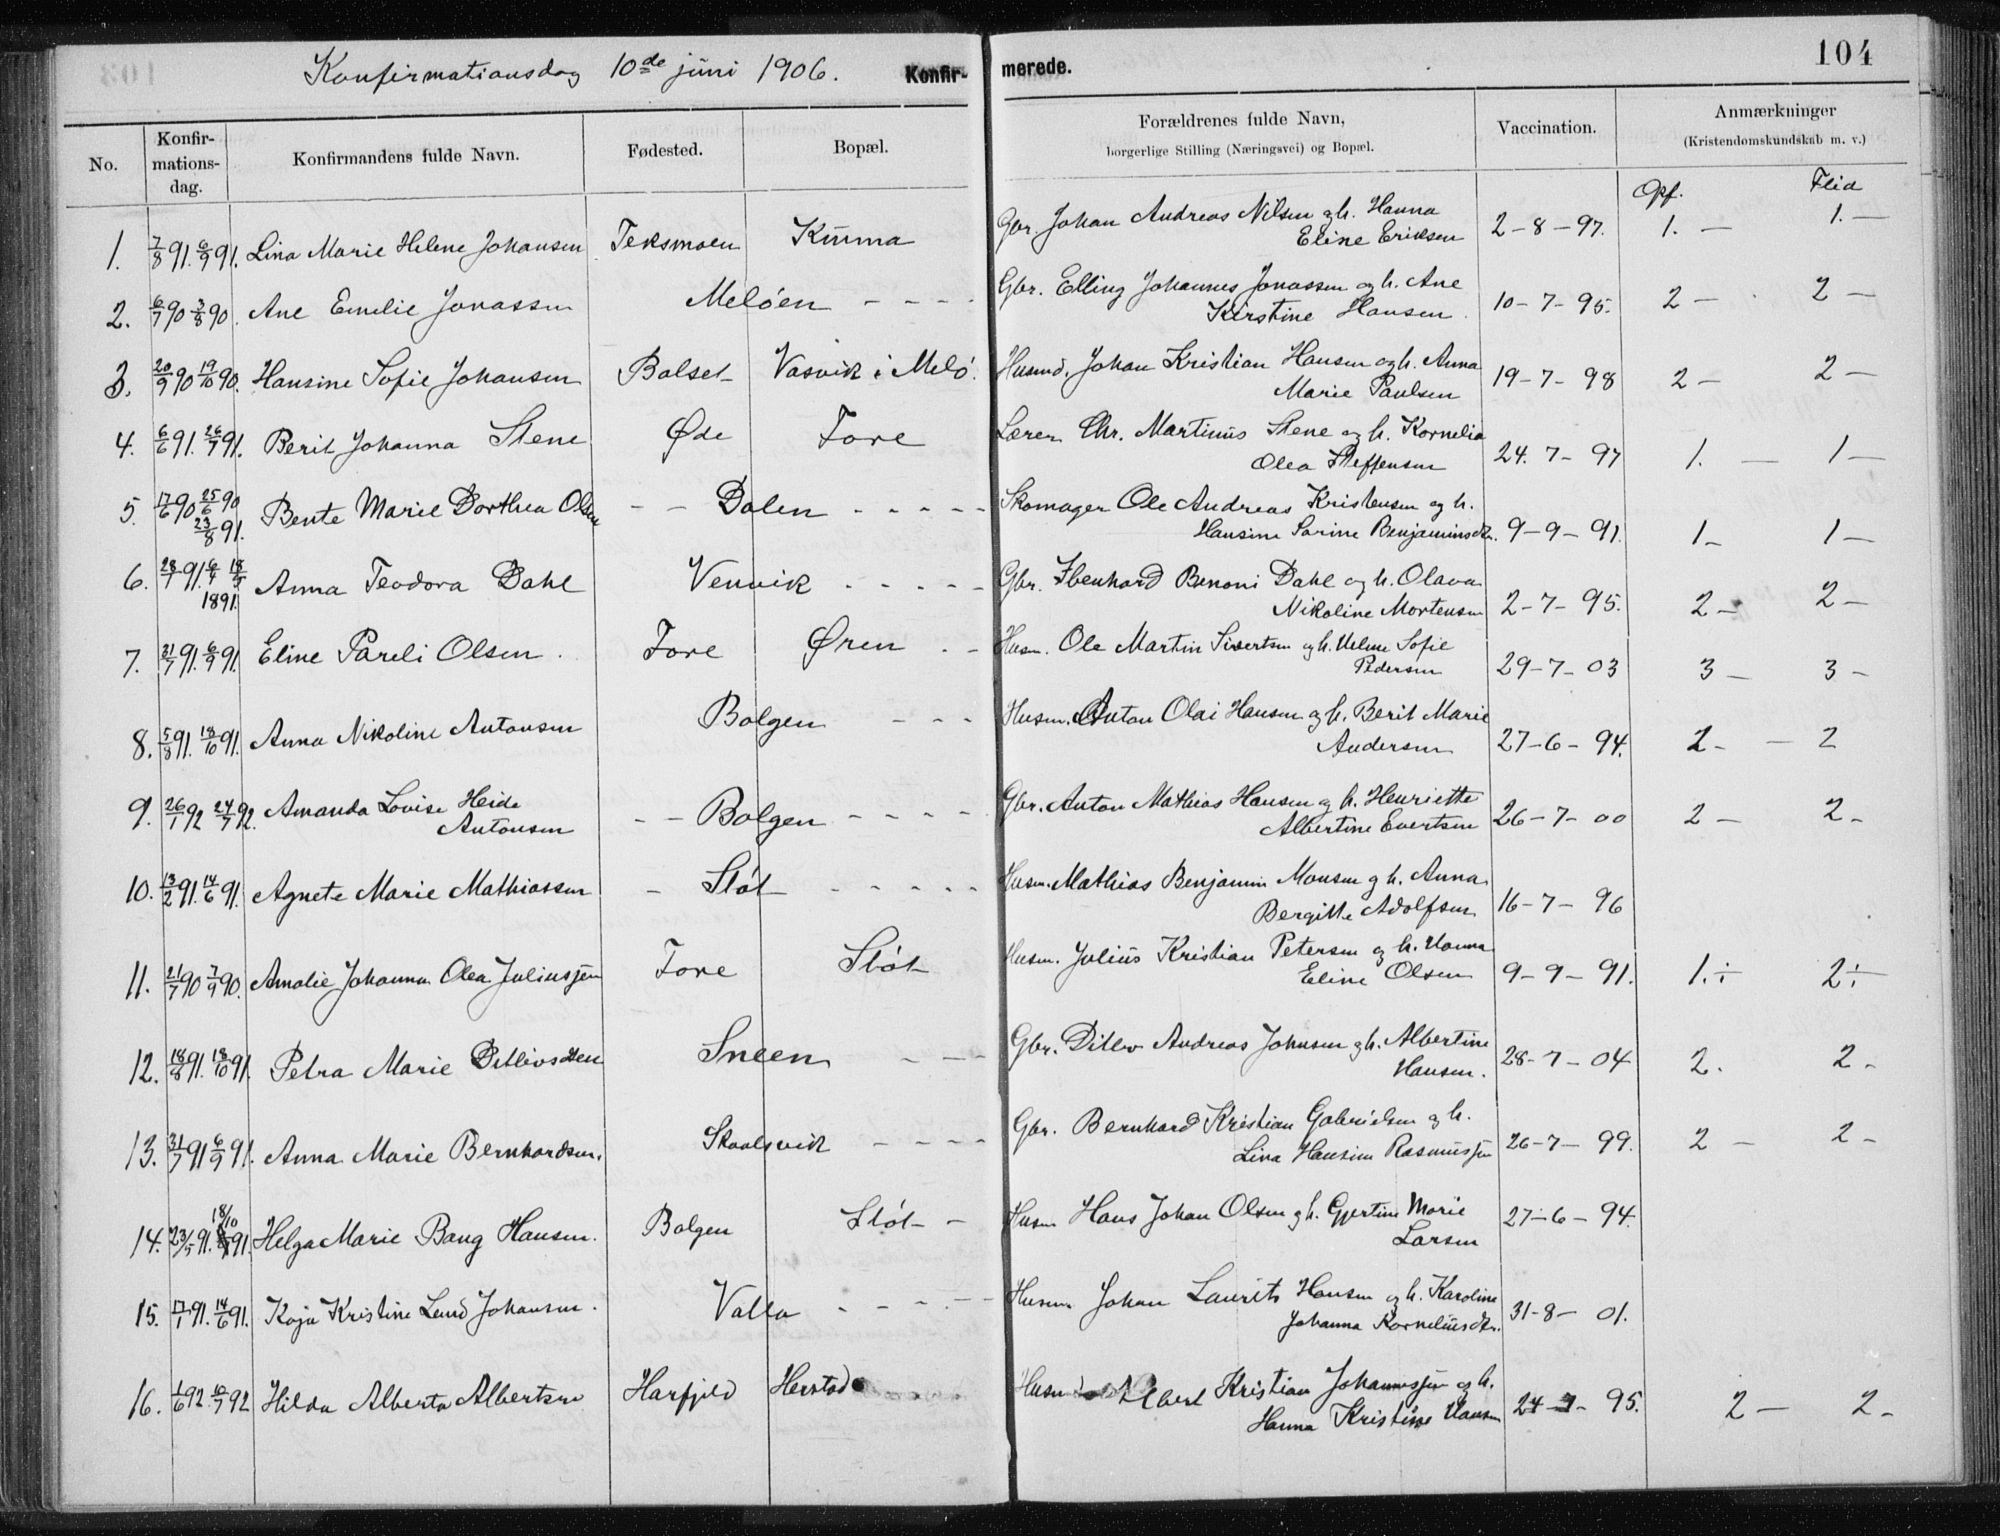 Konfirmationsdag 10de juni 1906. Konfir- merede. 104
No. Konfir-mations-dag. Konfirmandens fulde Navn. Fødested. Bopæl. Forældrenes fulde Navn, borgerlige Stilling (Næringsvei) og Bopæl. Vaccination. Anmærkninger (Kristendomskundskab m. v.)
Opf. Flid
1. 7/8 91. 6/9 91. Lina Marie Helene Johansen Teksmoen Kunna Gbr. Johan Andreas Nilsen og h. Hanna 1. —
Eline Eriksen 2-8-97. 1. —
2. 6/7 90 3/8 90. Ane Emelie Jonassen Melöen - - - - Gbr. Elling Johannes Jonassen og h. Ane
Kirstine Hansen. 10-7-95. 2 — 2 —
3. 20/9 90 19/10 90. Hansine Sofie Johansen Bolset Vasvik i Melö. Husmd. Johan Kristian Hansen og h. Anna
Marie Paulsen 19-7-98 2 — 2 —
4. 6/6 91. 26/7 91. Berit Johanna Stene Øde Fore Lærer Chr. Martinus Stene og h. Kornelia
Olea Steffensen 24. 7-97 1. — 1 —
5. 17/6 90 25/6 90 Bente Marie Dorthea Olsen - - Dalen - - - - - Skomager Ole Andreas Kristensen og h.
23/8 91. Hansine Sarine Benjaminsdtr. 9-9-91. 1 - 1 —
6. 28/1 91. 6/4 18/5 1891. Anna Teodora Dahl Venvik - - - - - Gbr. Ibenhard Benoni Dahl og h. Olava
Nikoline Mortensen 2-7-95. 2 - 2 —
7. 21/7 91. 6/9 91. Eline Pareli Olsen. Fore Øren - - Husm. Ole Martin Sivertsen og h. Helene Sofie
Pedersen 29-7-03 3 — 3 -
8. 5/8 91. 18/10 91. Anna Nikoline Antonsen Bolgen - - - Husm. Anton Olai Hansen og h. Berit Marie
Andersen 27-6-94. 2 - - 2
9. 26/1 92 24/7 92. Amanda Lovise Heida - - Bolgen - - - - - Gbr. Anton Mathias Hansen og h. Henriette
Antonsen Albertine Evertsen 26-7-00 2 — 2 -
10. 13/2 91. 14/6 91. Agnete Marie Mathiassen - Stöt - - - - - Husm. Mathias Benjamin Monsen og h. Anna
Bergitte Adolfsen 16-7-96
11. 21/7 90 7/9 90. Amalie Johanna Olea Juliussen Fore Stöt Husm. Julius Kristian Petersen og h. Hanna
Eline Olsen 9-9-91. 1. ÷ 2 ÷
12. 18/8 91. 18/10 91. Petra Marie Ditlevsen Sneen - - - Gbr. Ditlev Andreas Johnsen og h. Albertine
Hansen. 28-7-04 2. 2 -
13. 31/7 91 6/9 91. Anna Marie Bernhardsen. Staalsvik - - - - Gbr. Bernhard Kristian Gabrielsen og h.
Lina Hansine Rasmussen 26-7-99. 2 — 2 -
14. 23/5 91. 18/10 91. Helga Marie Bang Hansen. Bolgen Stöt - Husm Hans Johan Olsen og h. Gjertine Marie
Larsen 27-6-94.
15. 17/1 91. 14/6 91. Kaja Kristine Lund Johansen. Valla - - - - - Husm Johan Laurits Hansen og h. Karoline
Johanna Korneliusdtr. 31-8-01.
16. 1/6 92. 10/7 92 Hilda Alberta Albertsen Harfjeld Herstad Husmd Albert Kristian Johannessen og h.
Hanna Kristine Hansen 24-7-95. 2 — 2 -